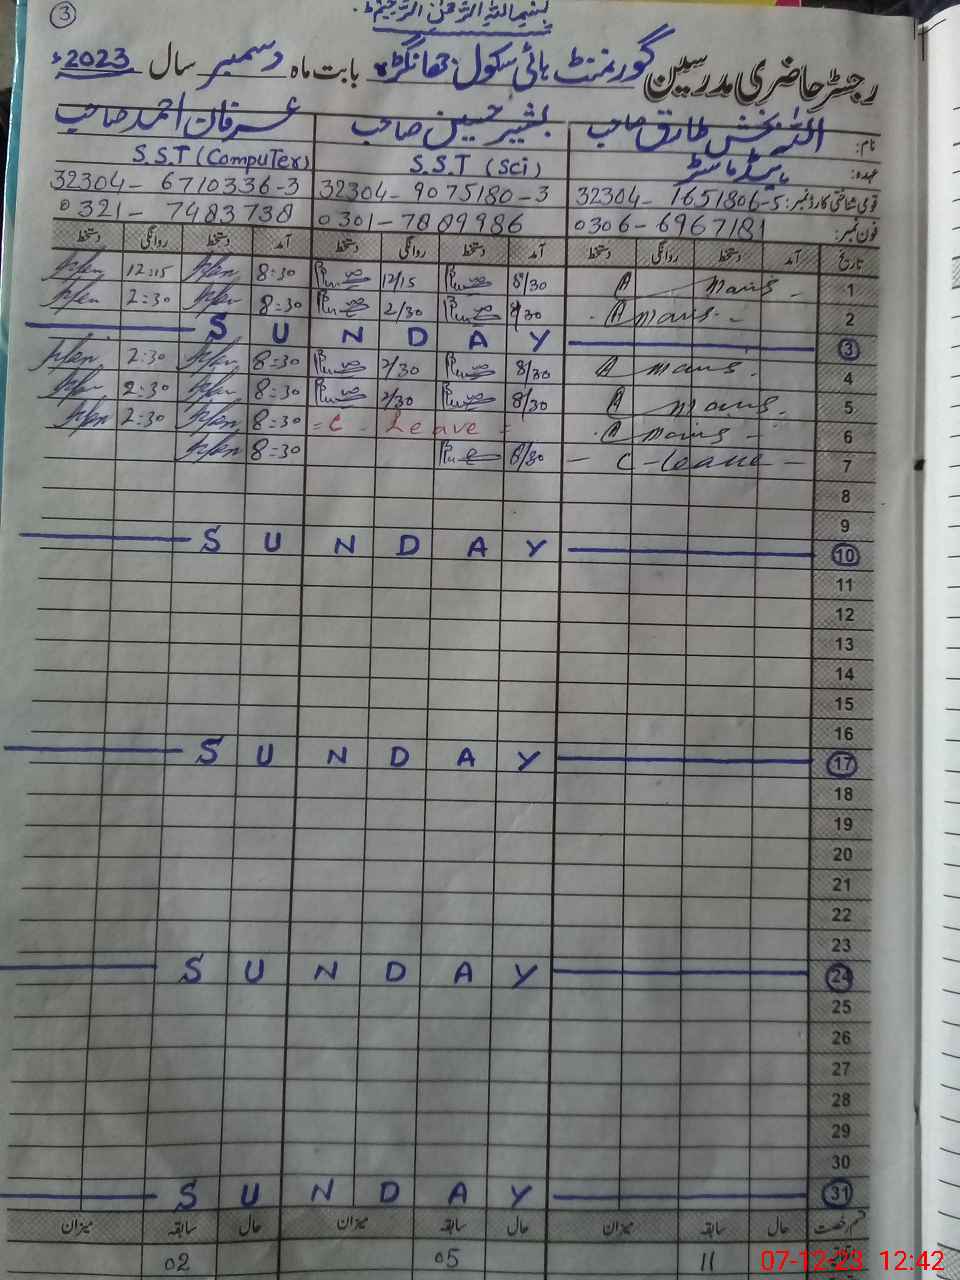 3
بسم اللہ الرحمٰن الرحیم
رجسٹر حاضری مدرسین گورنمنٹ ہائی سکول بابت ماہ دسمبر سال 2023ء
نام: اللہ بخش طارق صاحب بشیر حسین صاحب عرفان احمد صاحب
عہدہ: ہیڈ ماسٹر S.S.T (Sci) S.S.T (Computer)
قومی شناختی کارڈ نمبر: 32304-1651806-5 32304-9075180-3 32304-6710336-3
فون نمبر: 0306-6967181 0301-7889986 0321-7483738
تاریخ آمد دستخط روانگی دستخط آمد دستخط روانگی دستخط آمد دستخط روانگی دستخط
1 8/30 12/15 8:30 12:15
2 8/30 2/30 8:30 2:30
3 SUNDAY
4 8/30 2/30 8:30 2:30
5 8/30 2/30 8:30 2:30
6 = C - Leave = 8:30 2:30
7 - C - leave - 8/30 8:30
8
9
10 SUNDAY
11
12
13
14
15
16
17 SUNDAY
18
19
20
21
22
23
24 SUNDAY
25
26
27
28
29
30
31 SUNDAY
قسم رخصت حال سابقہ میزان حال سابقہ میزان حال سابقہ میزان
11 05 02
07-12-23 12:42